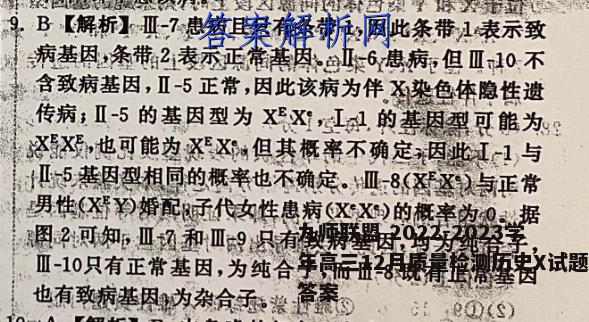 9. B【解析】Ⅲ-7患病且只有条带1,因此条带1表示致
答案解析网
病基因,条带2表示正常基因。Ⅱ-6患病,但Ⅲ-10不
含致病基因,Ⅱ-5正常,因此该病为伴X染色体隐性遗
传病;Ⅱ-5的基因型为XᴱXᵉ,Ⅰ-1的基因型可能为
XᴱXᴱ,也可能为XᴱXᵉ,但其概率不确定,因此Ⅰ-1与
Ⅱ-5基因型相同的概率也不确定。Ⅲ-8(XᴱXᵉ)与正常
男性(XᴱY)婚配,子代女性患病(XᵉXᵉ)的概率为0。据
图2可知,Ⅲ-7和Ⅲ-9只有致病基因,均为纯合子,
Ⅲ-10只有正常基因,为纯合子,而Ⅲ-8既有正常基因
也有致病基因,为杂合子。
九师联盟 2022-2023学
年高三12月质量检测历史X试题
答案